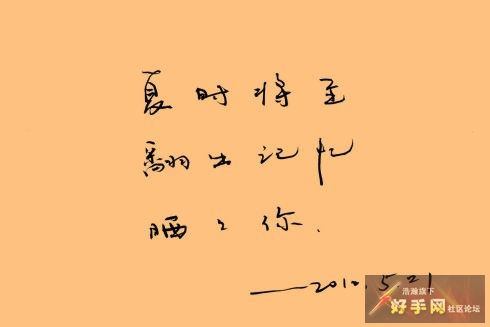 夏时将至
翻出记忆
晒晒你.
——2010.5.21
浩瀚旗下
好手网社区论坛